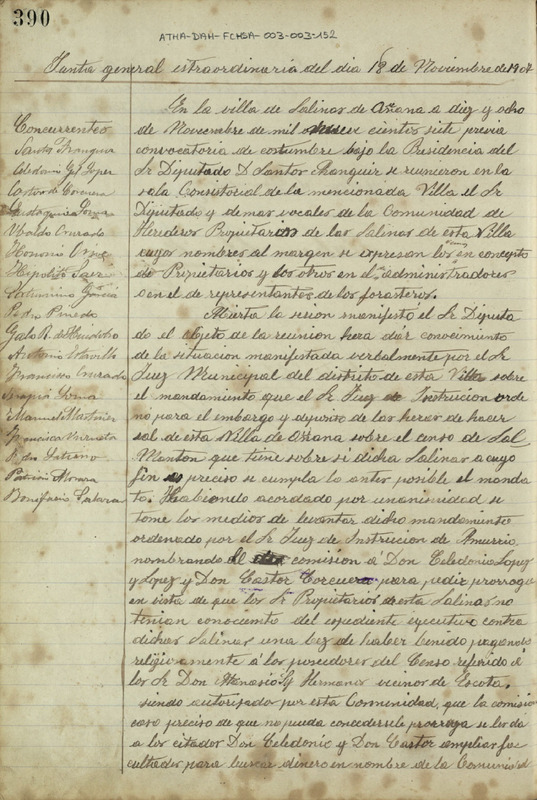 390
ATHA-DAH-FCHSA-003-003-152
Junta general estraordinaria del dia 18 de Noviembre de 1907
Concurrentes
Castor de Corcuera
Ubaldo Ounado
Honorio
Hipolito Saez
Fortunino Garcia
Pedro Pinedo
Antonio
Francisco Ounado
Manuel Martinez
Francisca
Bonifacio
En la villa de Salinas de Añana a diez y ocho
de Noviembre de mil cientos siete previa
convocatoria de costumbre bajo la Presidencia del
Sr Diputado D Santos se reunieron en la
sala Consistorial de la mencionada Villa el Sr
Diputado y demas vocales de la Comunidad de
Herederos Propietarios de las Salinas de esta Villa
cuyos nombres del margen se expresan los unos en concepto
de Propietarios y los otros en el de administradores
o en el de representantes de los forasteros.
Abierta la sesion manifestó el Sr Diputa
do el objeto de la reunion hera dár conocimiento
de la situacion manifestada verbalmente por el Sr
Juez Municipal del distrito de esta Villa sobre
el mandamento que el Sr Juez de Instrucion orde
no para el embargo y deposito de las heras de hacer
sal de esta Villa de Añana sobre el censo de Sal
Manton que tiene sobre si dicha Salinas a cuyo
fin es preciso se cumpla lo antes posible el manda
to. Habiendo acordado por unanimidad se
tome los medios de levantar dicho mandamento
ordenado por el Sr Juez de Instrucion de Amurrio
nombrando comision á Don Celedonio Lopez
y Lopez y Don Castor Corcuera para pedir prorroga
en vista de que los Sr Propietarios de esta Salinas no
tenian conocimento del espediente ejecutivo contra
dichas Salinas una bez de haber benido pagando
religiosamente á los poseedores del Censo referido á
los Sr Don Atanasio y Hermanos vecinos de Escota.
siendo autorizado por esta Comunidad, que la comision
caso preciso de que no pueda concederseles prorroga se les da
a los citados Don Celedonio y Don Castor amplias fa
cultades para buscar dinero en nombre de la Comunidad